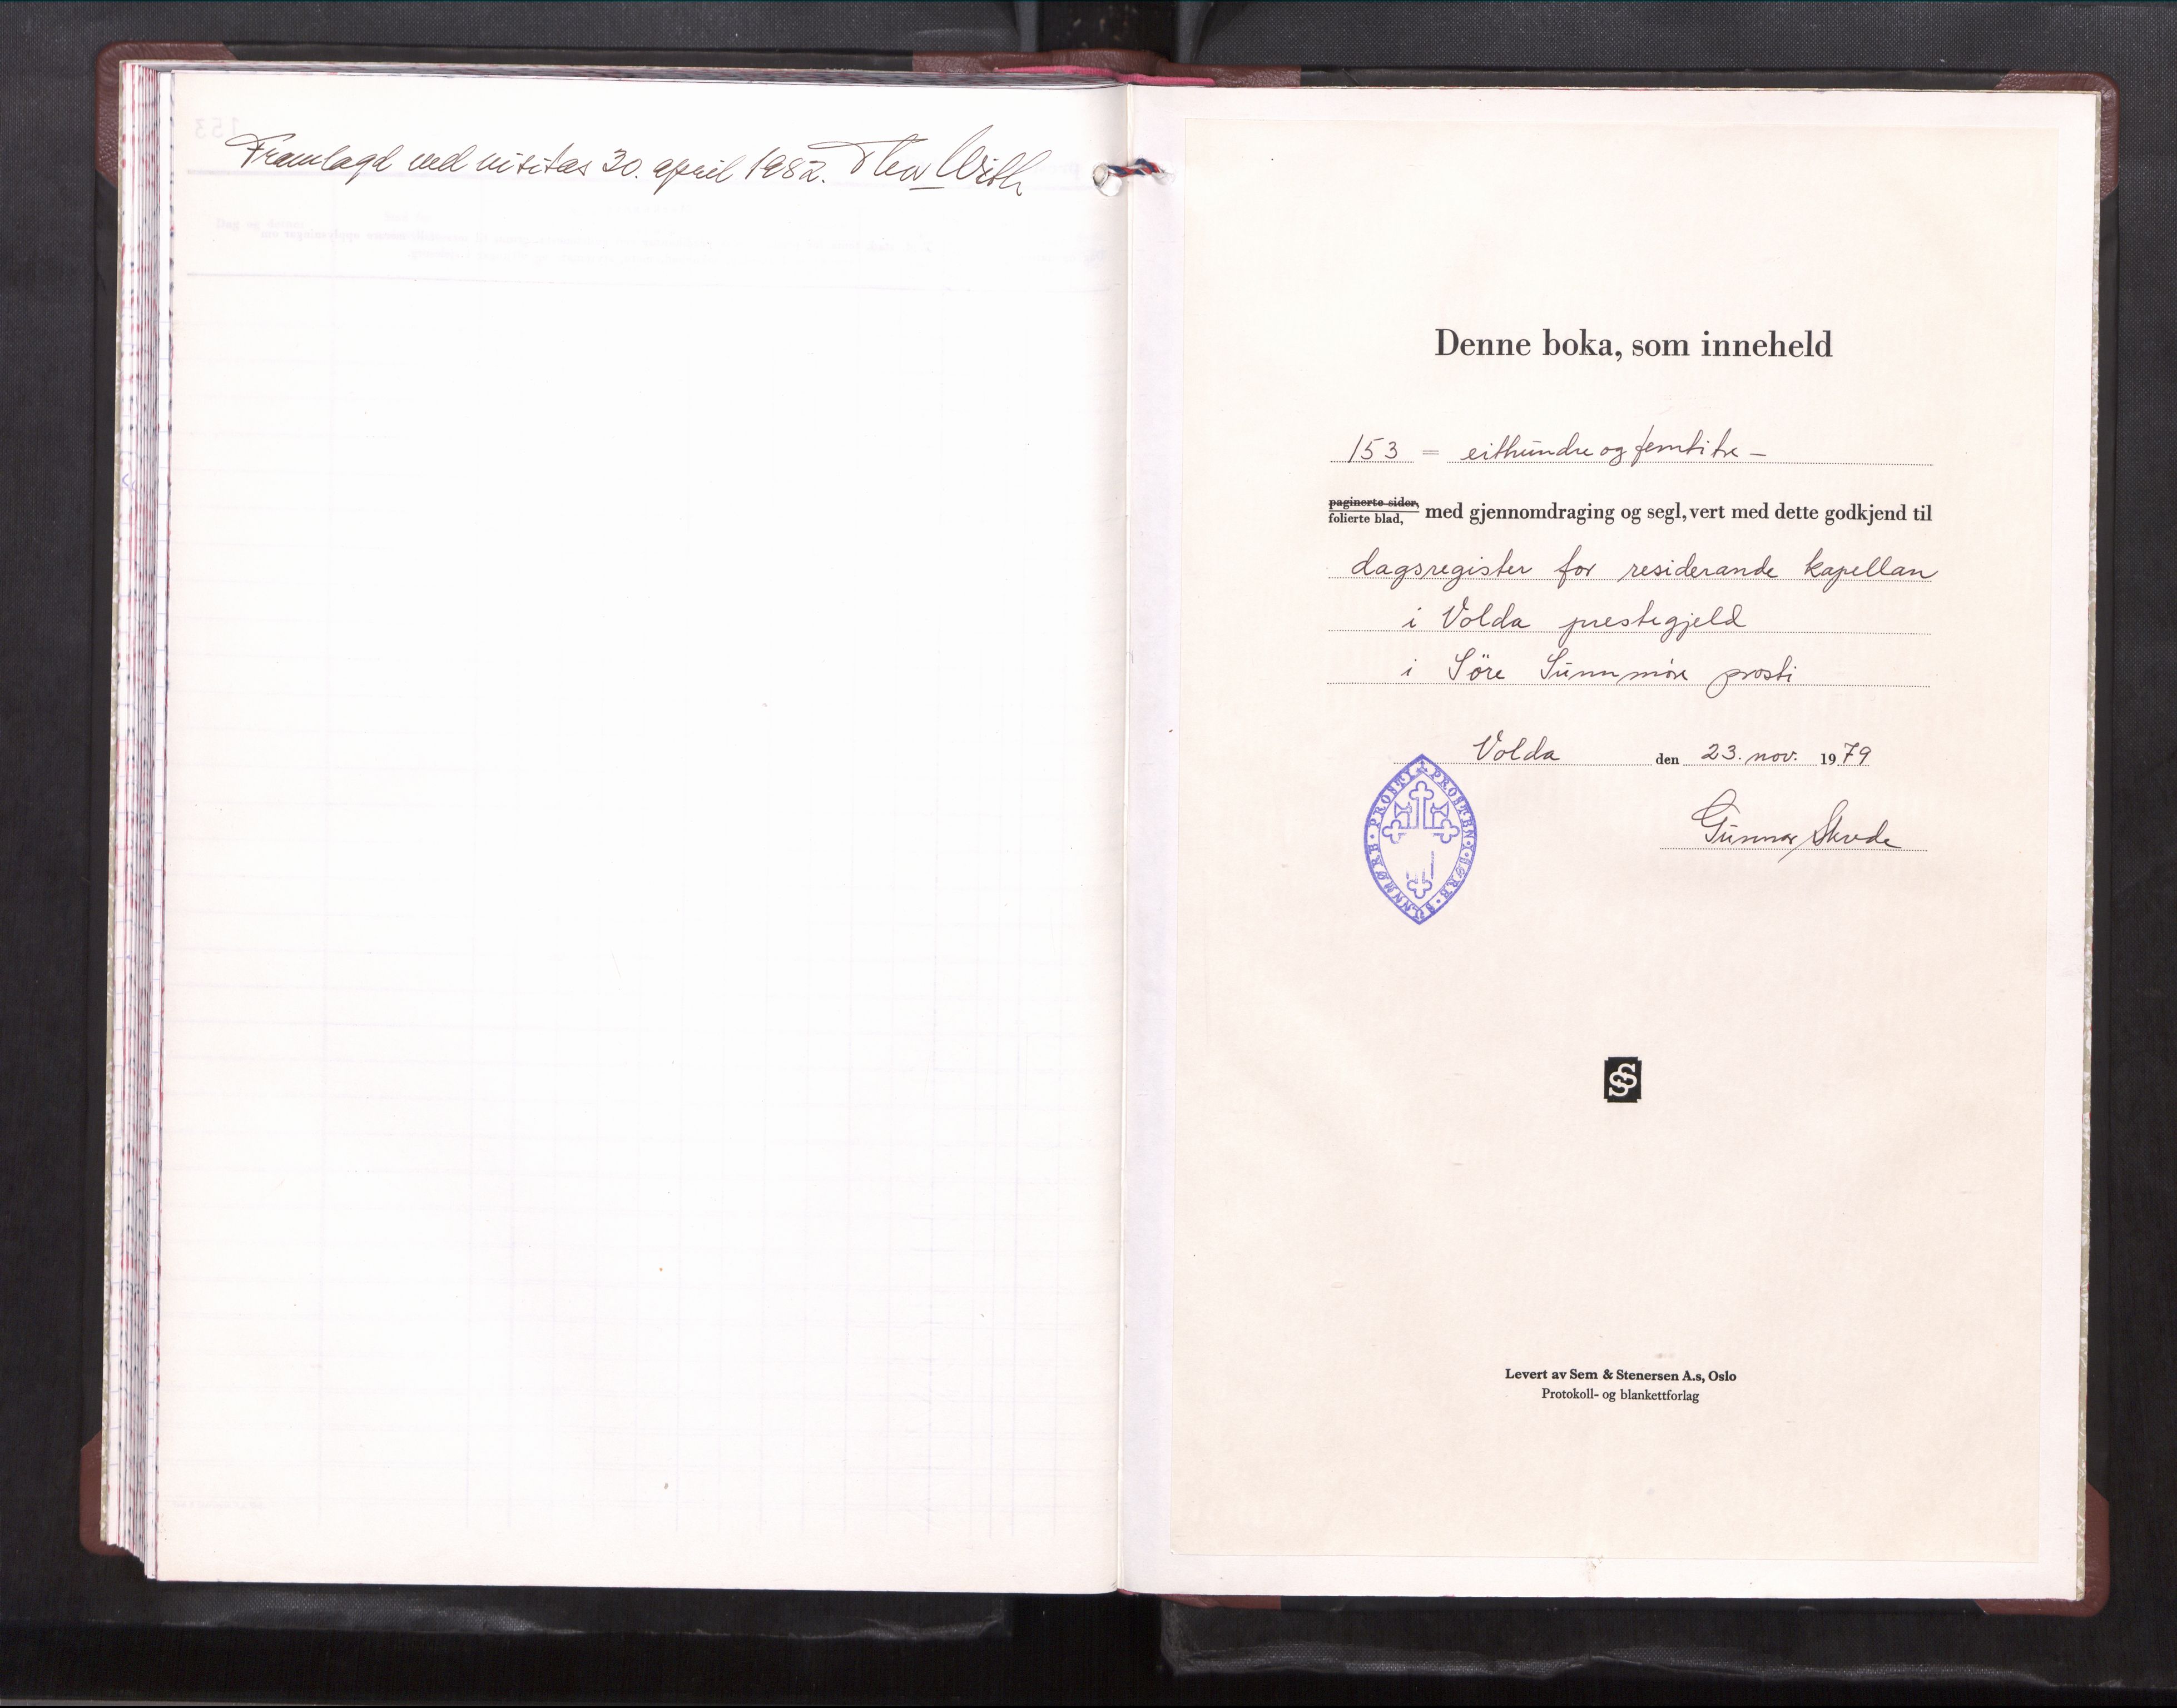 Framlagd ved visitas 30. april 1982. Thor With
Denne boka, som inneheld
153 = eithundre og femtitre -
paginerte sider,
folierte blad, med gjennomdraging og segl, vert med dette godkjend til
dagsregister for residerande kapellan
i Volda prestegjeld
i Söre Sunnmöre prosti
Volda den 23. nov. 1979
Gunnar Skrede
SS
Levert av Sem & Stenersen A.s, Oslo
Protokoll- og blankettforlag